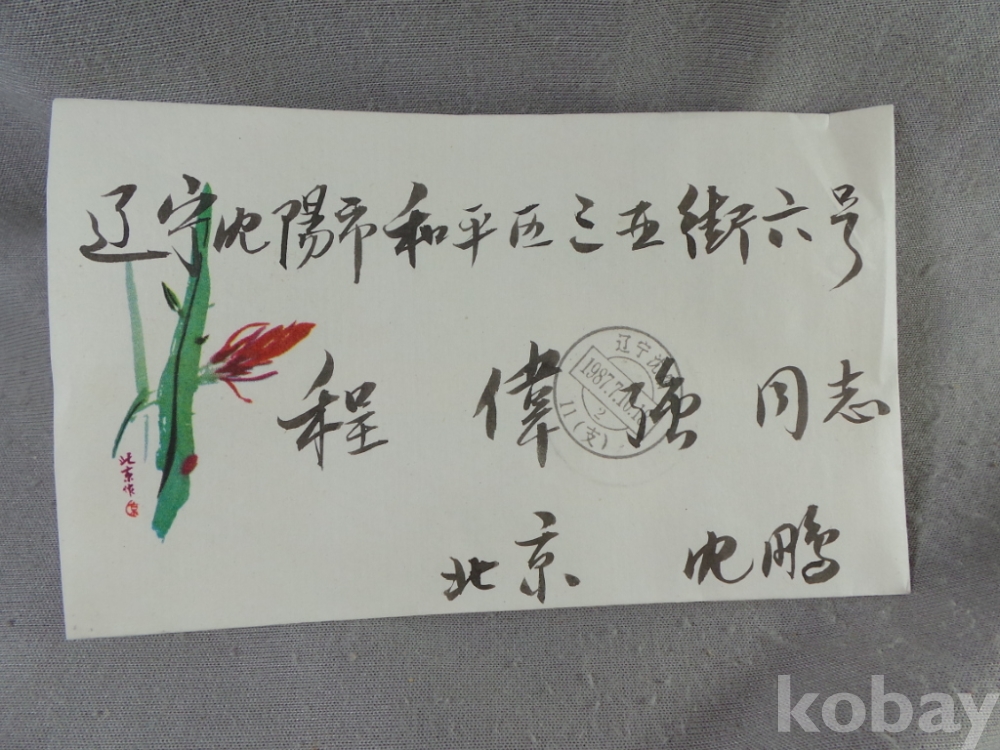 辽宁沈陽市和平区三在街六号
程偉强同志
北京 沈鹏
辽宁沈
1987.7.10.1
2
11(支)
北京作
kobay